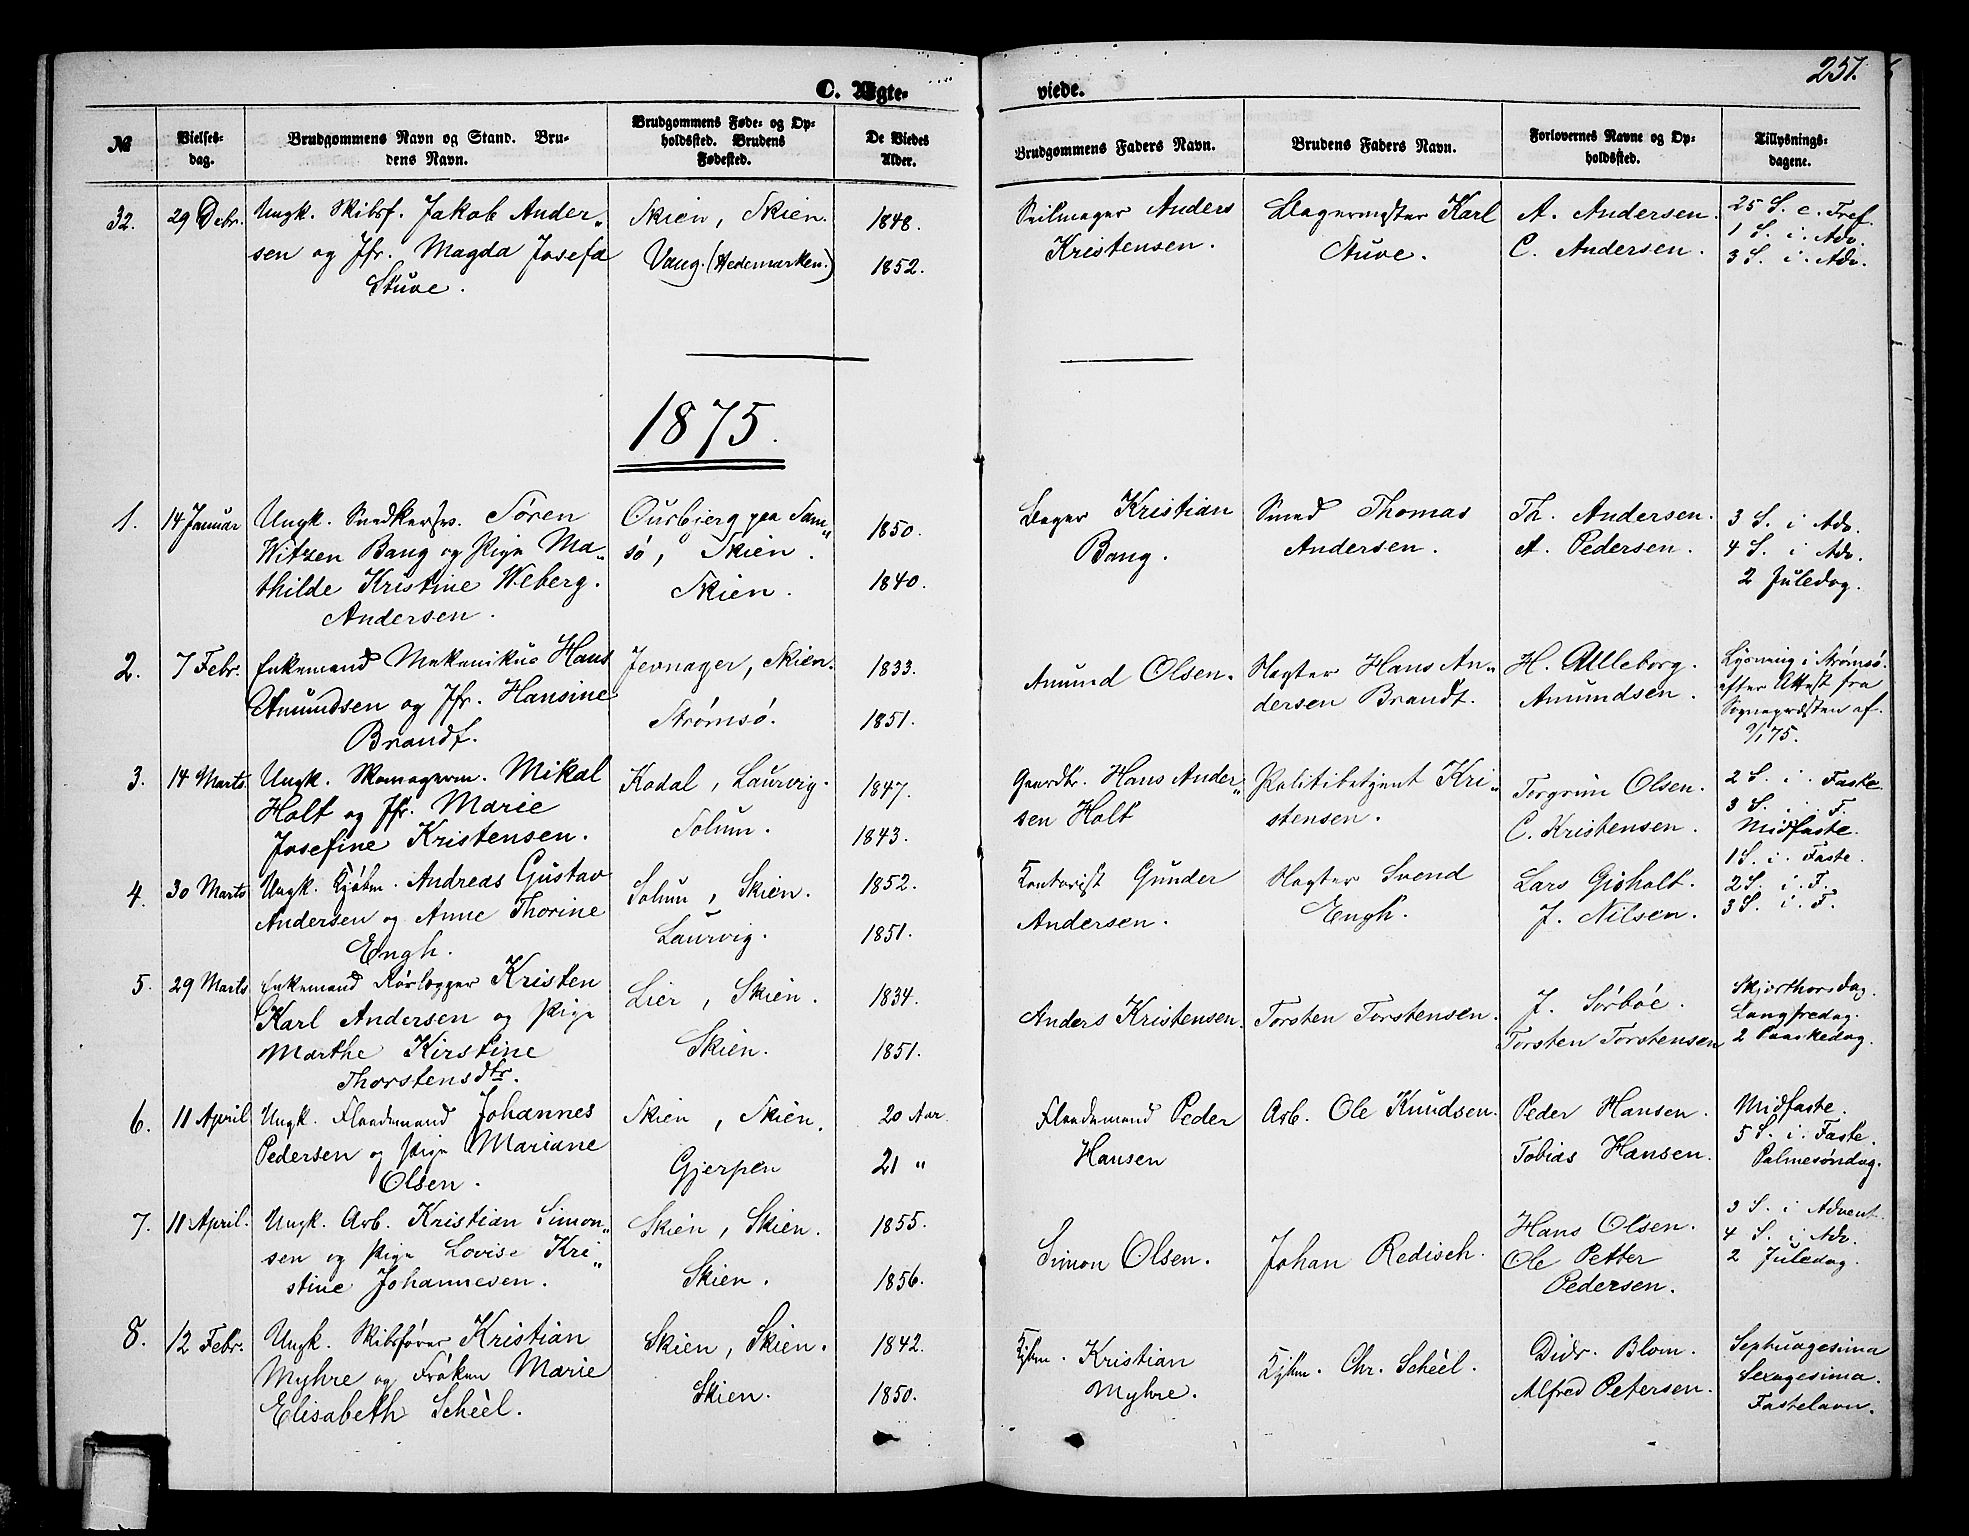 257.
C. Ægte-
viede.
№
Vielses-
dag.
Brudgommens Navn og Stand. Bru-
dens Navn.
Brudgommens Føde- og Op-
holdssted. Brudens
Fødested.
De Viedes
Alder.
Brudgommens Faders Navn.
Brudens Faders Navn.
Forlovernes Navne og Op-
holdssted.
Tillysnings-
dagene.
32.
29 Debr.
Ungk. Skibsf. Jakob Ander„
sen og Jfr. Magda Josefa
Stuve.
Skien, Skien.
Vang. (Hedemarken.)
1848.
1852.
Seilmager Anders
Kristensen.
Bagermester Karl
Stuve.
A. Andersen.
C. Andersen.
25 S. e. Tref.
1 S. i. Adv.
3 S. i. Adv.
1875.
1.
14 Januar
Ungk. Snedkersv. Søren
Witzen Bang og Pige Ma„
thilde Kristine Weberg.
Andersen.
Oursbjerg paa Sam„
sø, Skien.
Skien.
1850.
1840.
Bager Kristian
Bang.
Smed Thomas
Andersen.
Th. Andersen.
A. Pedersen.
3 S. i Adv.
4 S. i Adv.
2 Juledag.
2.
7 Febr.
Enkemand Mekanikus Hans
Amundsen og Jfr. Hansine
Brandt.
Jevnager, Skien.
Strømsø.
1833.
1851.
Amund Olsen.
Vægter Hans An„
dersen Brandt.
H. Ulleborg.
Amundsen.
Lysning i Strømsø.
efter Attest fra
Sognepræsten af
75.
3.
14 Marts.
Ungk. Skomagerm. Mikal
Holt og Jfr. Marie
Josefine Kristensen.
Kodal, Laurvig.
Solum.
1847.
1843.
Gaardbr. Hans Ander„
sen Holt
Politibetjent Kri„
stensen.
Torgrim Olsen.
C. Kristensen.
2 S. i. Faste.
3 S. i. F.
Midfaste.
4.
30 Marts
Ungk. Kjøbm. Andreas Gustav
Andersen og Anne Thorine
Engh.
Solum, Skien.
Laurvig.
1852.
1851.
Kontorist Gunder
Andersen.
Vægter Svend
Engh.
Lars Gisholt.
J. Nilsen.
1 S. i. Faste.
2 S. i. F.
3 S. i. F.
5.
29 Marts
Enkemand Rørlægger Kristen
Karl Andersen og Pige
Marthe Kirstine
Thorstensdtr.
Lier, Skien.
Skien.
1834.
1851.
Anders Kristensen.
Torsten Torstensen.
J. Sørbøe.
Torsten Torstensen
Skjærthorsdag.
Langfredag.
2 Paaskedag.
6.
11 April
Ungk. Flaademand Johannes
Pedersen og Pige Mariane
Olsen.
Skien, Skien.
Gjerpen
20 Aar.
21 „
Flaademand Peder
Hansen
Arb. Ole Knudsen.
Peder Hansen.
Tobias Hansen.
Midfaste.
5 S. i. Faste.
Palmesøndag.
7.
11 April.
Ungk. Arb. Kristian Simon„
sen og Pige Lovise Kri„
stine Johannesen.
Skien, Skien.
Skien.
1855.
1856.
Simon Olsen.
Johan Redisch.
Hans Olsen.
Ole Petter
Pedersen.
3 S. i Advent.
4 S. i Adv.
2 Juledag.
8.
12 Febr.
Ungk. Skibsfører Kristian
Myhre og Frøken Marie
Elisabeth Schéel.
Skien, Skien.
Skien.
1842.
1850.
Kjbm. Kristian
Myhre.
Kjbm. Chr. Schéel.
Didr. Blom.
Alfred Petersen.
Septuagesima
Sexagesima.
Fastelavn.